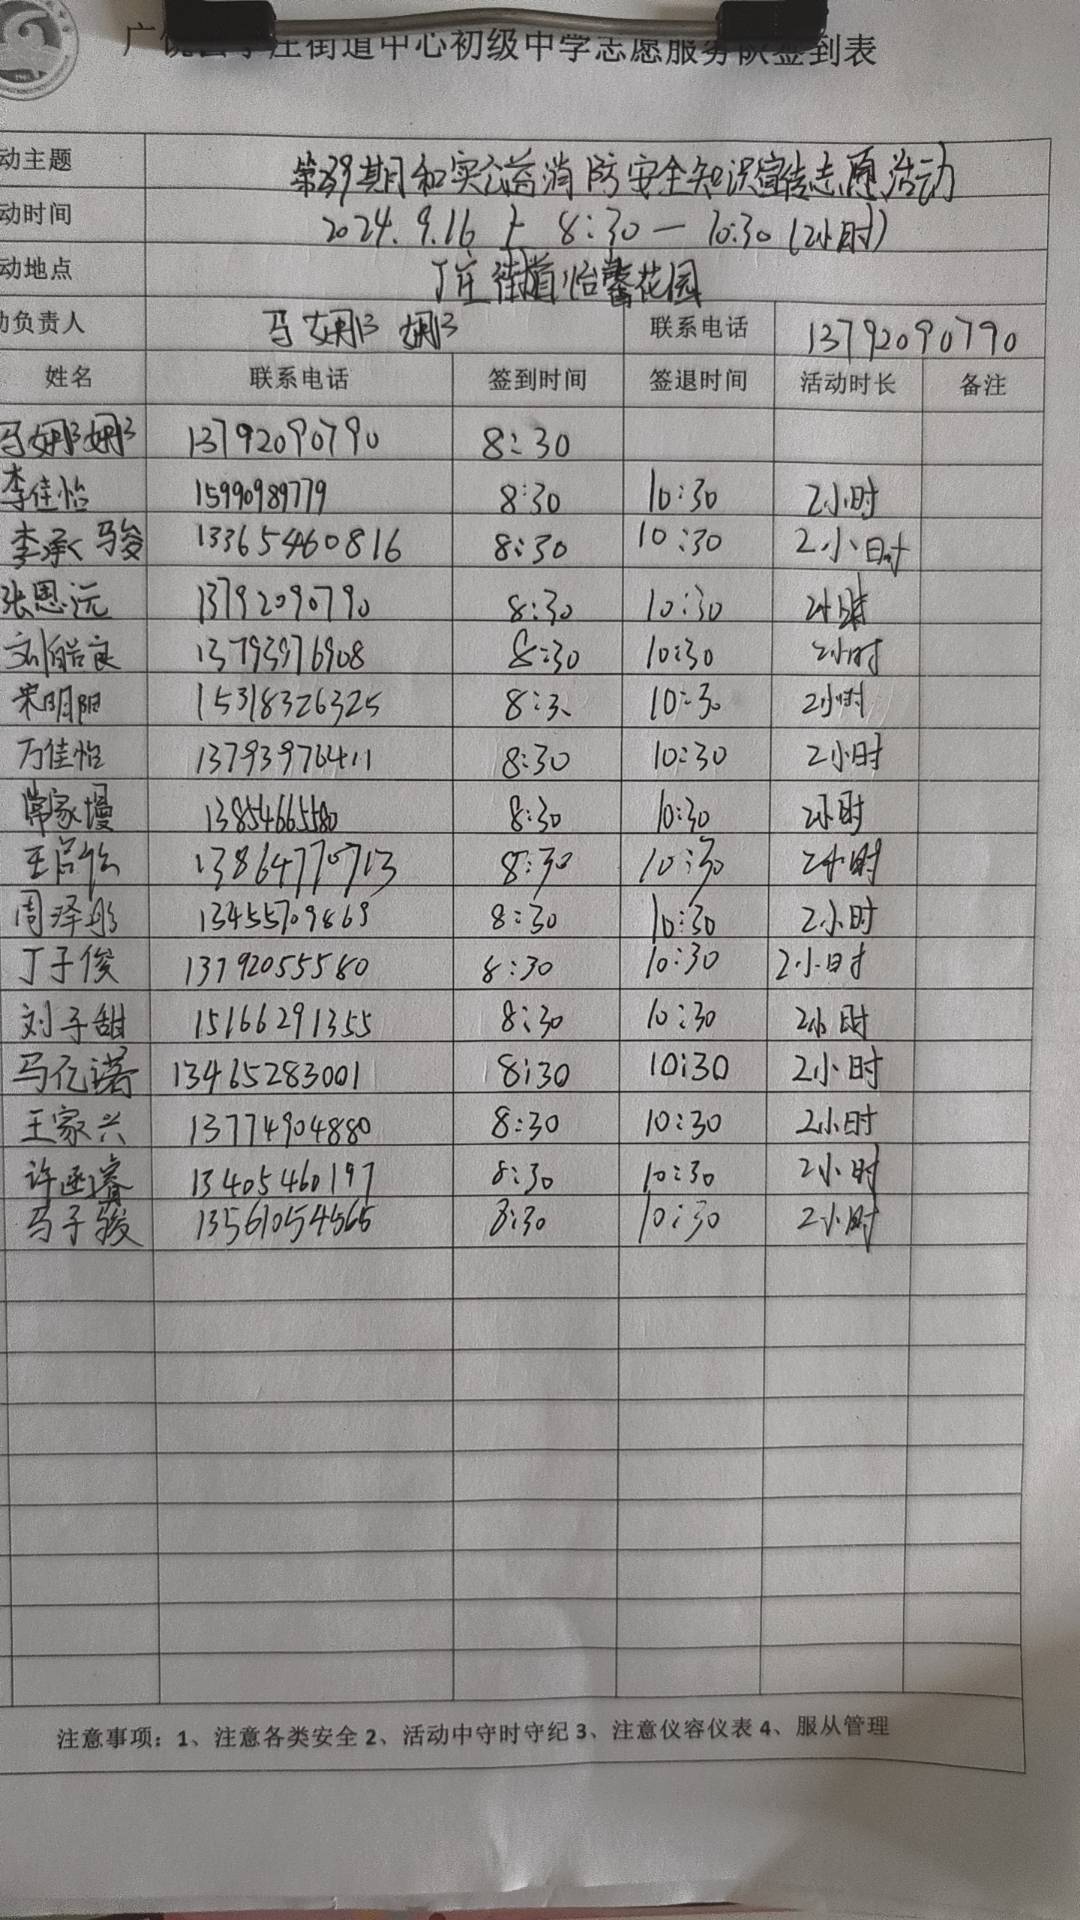 街道中心初级中学志愿服务队签到表
动主题 期和实公益消防安全知识宣传志愿活动
动时间 2024.9.16 上 8:30—10:30(2小时)
动地点 丁庄街道怡馨花园
负责人 马娜娜 联系电话 13792090790
姓名 联系电话 签到时间 签退时间 活动时长 备注
马娜娜 13792090790 8:30
李佳怡 15990989779 8:30 10:30 2小时
李承骏 13365460816 8:30 10:30 2小时
张恩远 13792090790 8:30 10:30 2小时
刘皓良 13793976908 8:30 10:30 2小时
宋明阳 15318326325 8:30 10:30 2小时
万佳怡 13793976411 8:30 10:30 2小时
常家墁 13854665580 8:30 10:30 2小时
13864770713 8:30 10:30 2小时
周泽彤 13455709869 8:30 10:30 2小时
丁子俊 13792055580 8:30 10:30 2小时
刘子甜 15166291355 8:30 10:30 2小时
马亿诺 13465283001 8:30 10:30 2小时
王家兴 13774904880 8:30 10:30 2小时
许函睿 13405460197 8:30 10:30 2小时
马子骏 13561054565 8:30 10:30 2小时
注意事项：1、注意各类安全 2、活动中守时守纪 3、注意仪容仪表 4、服从管理